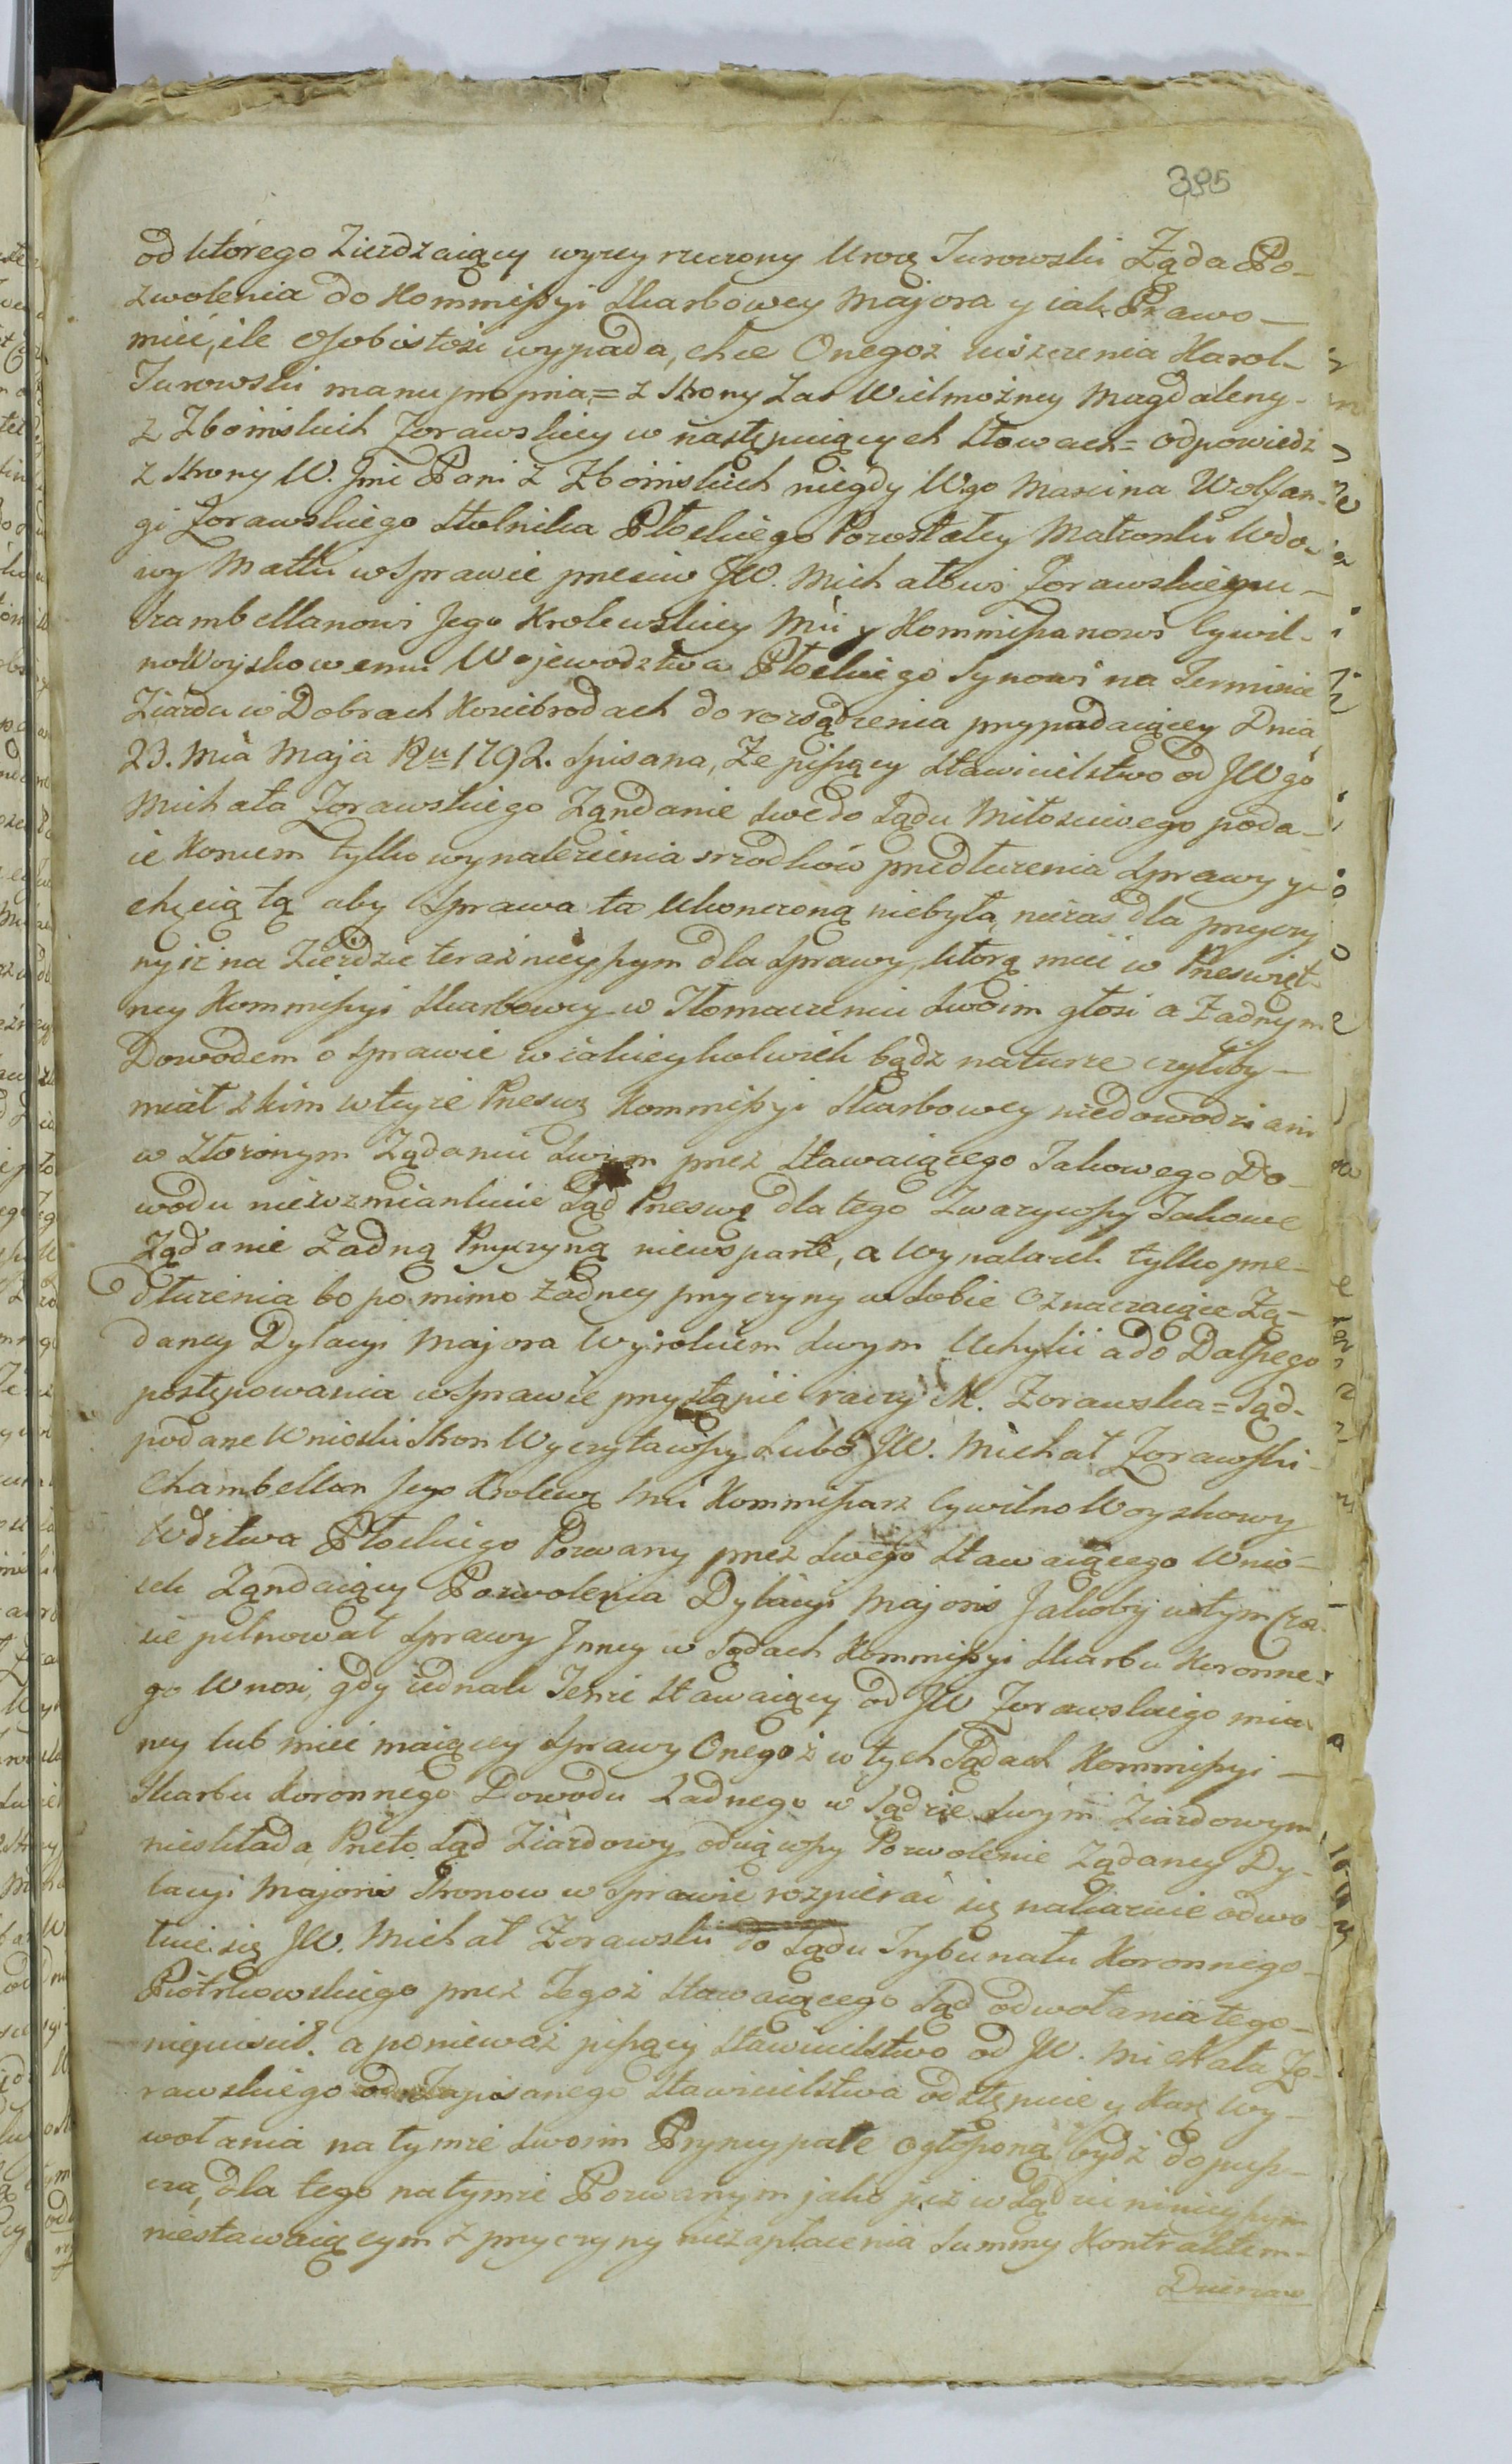 395
od którego Ziezdzaiący wyzey rzeczony Urorz Turowski Ząda Po-
zwolenia do Kommissyi Skarbowey Majora y iak Prawo
mieć, ile Osobistości wypada, chce Onegoż uiszczenia Karol
Turowski manu propria = z Strony Zas Wielmożney Magdaleny
z Zboinskich Zorawskiey w następuiących Słowach = odpowiedź
z Strony W. Jmć Pani z Zboinskich niegdy W.go Marcina Wolfan-
gi Zorawskiego Stolnika Płockiego Pozostałey Małżonki Wdo-
wy Matki w Sprawie przeciw JW. Michałowi Zorawskiemu
Szambellanowi Jego Krolewskiey Mci y Kommissarzowi Cywil-
no Woyskowemu Wojewodztwa Płockiego Synowi na Terminie
Ziazdu w Dobrach Koziebrodach do rozsądzenia przypadaiącey Dnia
23. Mca Maja Ru 1792. Spisana, Ze piszący Stawicielstwo od JWgo
Michała Zorawskiego Ząndanie swe do Sądu Miłościwego poda-
ie Koncem tylko wynalezienia srzodków przedłuzenia Sprawy y
chęcią tą aby Sprawa ta Ukonczoną niebyła, niezas dla przyczy
ny iz na Zieździe teraznieyszym dla Sprawy, którą mieć w Prześwięt-
ney Kommissyi Skarbowey w Tłomaczeniu Swoim głosi a Zadnym
Dowodem o Sprawie w iakieykolwiek bądz naturze czyliby
miał z kim w teyże Przeswz Kommissyi Skarbowey niedowodzi ani
w złożonym Ządaniu Swym przez Stawaiącego Takowego Do-
wodu niewzmiankuie Sąd Przeswz dla tego Zwazywszy Takowe
Ządanie Zadną Przyczyną niewsparte, a Wynalazek tylko prze-
dłuzenia bo pomimo żadney przyczyny w Sobie Oznaczaiące Zą-
daney Dylacyi Majora Wyrokiem Swym Uchylić a do Dalszego
postępowania w Sprawie przystąpić raczy M. Zorawska = Sąd
podane Wnioski Stron Wyczytawszy Lubo JW. Michał Zorawski
Chambellan Jego Krolewz Mci Kommissarz Cywilno Woyskowy
Wdztwa Płockiego Pozwany przez Swego Stawaiącego Wnio-
sek Ząndaiący Pozwolenia Dylacyi Majoris Jakoby w tym Cza-
sie pilnował Sprawy Inney w Sądach Kommissyi Skarbu Koronne-
go Wnosi, gdy iednak Tenże Stawaiący od JW Zorawskiego mia-
ney lub mieć maiącey Sprawy Onegoż w tych Sądach Kommissyi
Skarbu Koronnego Dowodu Zadnego w Sądzie Swym Ziazdowym
nieskłada, Przeto Sąd Ziazdowy odiąwszy Pozwolenie Ządaney Dy-
lacyi Majoris Stronow w Sprawie rozpierać się nakazuie odwo
łuie się JW. Michał Zorawski do Sądu Trybunału Koronnego
Piotrkowskiego przez Tegoż Stawaiącego Sąd odwołania tego
niepuścił. a ponieważ piszący Stawicielstwo od JW. Michała Zo-
rawskiego od Zapisanego Stawicielstwa odstępuie y Karę Wy-
wołania na tymże Swoim Pryncypale ogłoszoną bydź dopusz-
cza, dla tego na tymże Pozwanym jako już w Sądzie ninieyszym
niestawaiącym z przyczyny niezapłacenia Summy Kontraktem
Dzierzaw